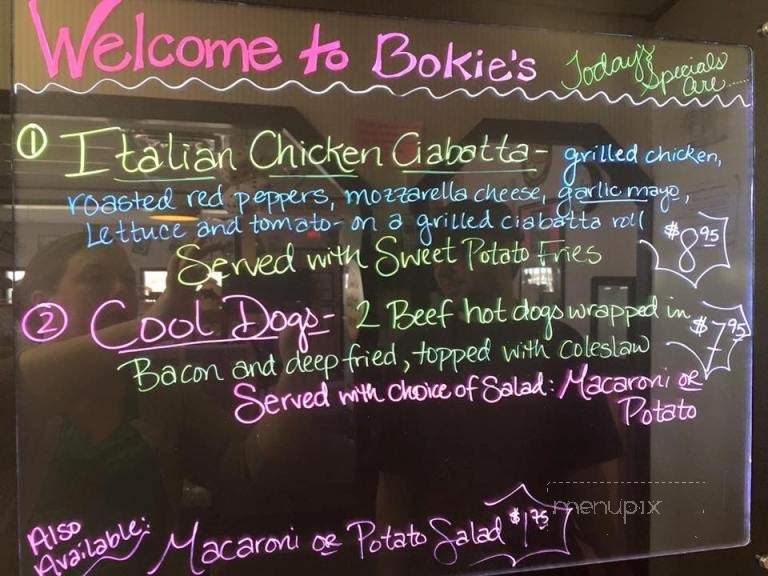 Welcome to Bokie's
Today's
Specials
are.....
① Italian Chicken Ciabatta - grilled chicken,
roasted red peppers, mozzarella cheese, garlic mayo,
Lettuce and tomato - on a grilled ciabatta roll
$8.95
Served with Sweet Potato Fries
② Cool Dogs - 2 Beef hot dogs wrapped in
$7.95
Bacon and deep fried, topped with coleslaw
Served with choice of Salad: Macaroni or
Potato
menupix
Also
Available:
Macaroni or Potato Salad $1.75